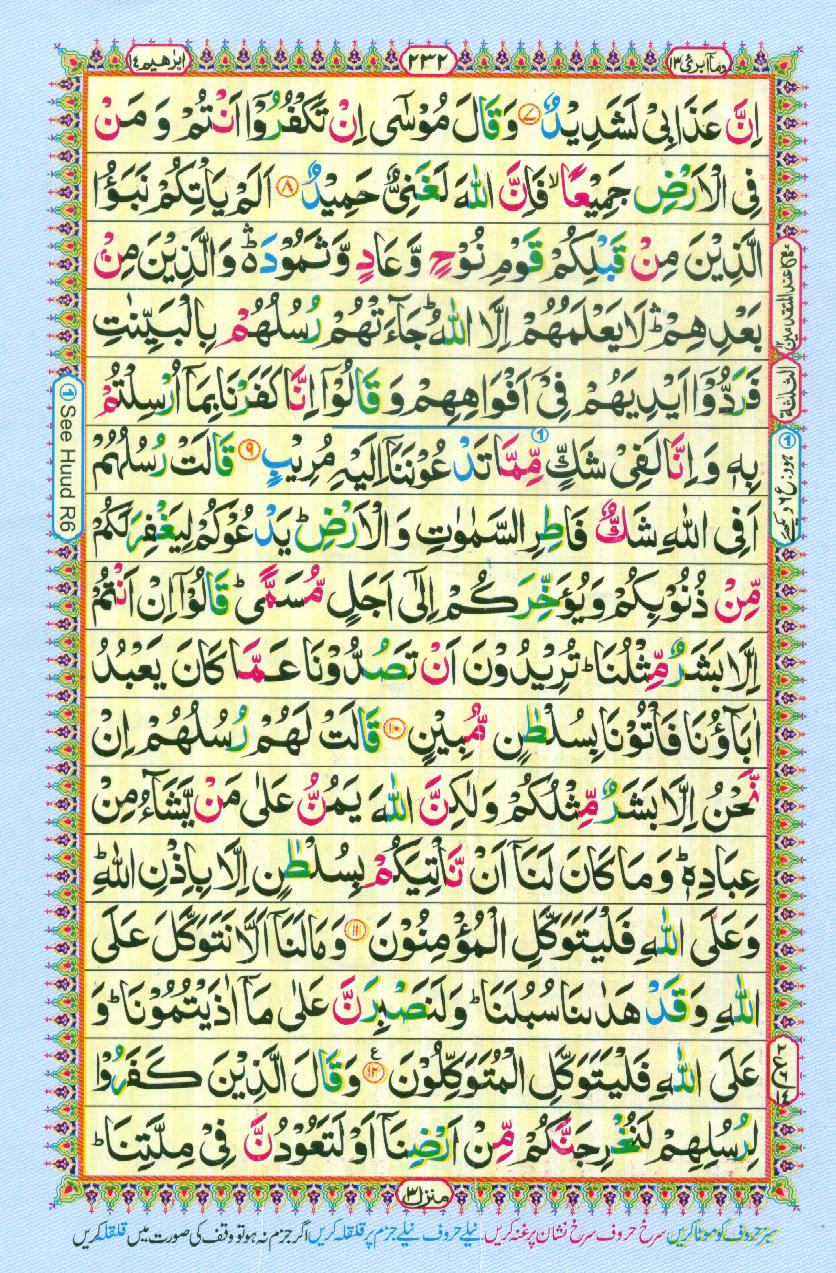 وما ابرئ ۱۳
۲۳۲
ابرٰهيم ۱۴
اِنَّ عَذَابِىْ لَشَدِيْدٌ ﴿۷﴾ وَقَالَ مُوْسٰٓى اِنْ تَكْفُرُوْٓا اَنْتُمْ وَ مَنْ
فِى الْاَرْضِ جَمِيْعًا ۙ فَاِنَّ اللّٰهَ لَغَنِىٌّ حَمِيْدٌ ﴿۸﴾ اَلَمْ يَاْتِكُمْ نَبَؤُا
الَّذِيْنَ مِنْ قَبْلِكُمْ قَوْمِ نُوْحٍ وَّعَادٍ وَّثَمُوْدَ ۛ وَالَّذِيْنَ مِنْۢ
بَعْدِهِمْ ۛ لَا يَعْلَمُهُمْ اِلَّا اللّٰهُ ؕ جَآءَتْهُمْ رُسُلُهُمْ بِالْبَيِّنٰتِ
فَرَدُّوْٓا اَيْدِيَهُمْ فِىْٓ اَفْوَاهِهِمْ وَ قَالُوْٓا اِنَّا كَفَرْنَا بِمَآ اُرْسِلْتُمْ
بِهٖ وَ اِنَّا لَفِىْ شَكٍّ مِّمَّا تَدْعُوْنَنَآ اِلَيْهِ مُرِيْبٍ ﴿۹﴾ قَالَتْ رُسُلُهُمْ
اَفِى اللّٰهِ شَكٌّ فَاطِرِ السَّمٰوٰتِ وَ الْاَرْضِ ؕ يَدْعُوْكُمْ لِيَغْفِرَ لَكُمْ
مِّنْ ذُنُوْبِكُمْ وَ يُؤَخِّرَكُمْ اِلٰٓى اَجَلٍ مُّسَمًّى ؕ قَالُوْٓا اِنْ اَنْتُمْ
اِلَّا بَشَرٌ مِّثْلُنَا ؕ تُرِيْدُوْنَ اَنْ تَصُدُّوْنَا عَمَّا كَانَ يَعْبُدُ
اٰبَآؤُنَا فَاْتُوْنَا بِسُلْطٰنٍ مُّبِيْنٍ ﴿۱۰﴾ قَالَتْ لَهُمْ رُسُلُهُمْ اِنْ
نَّحْنُ اِلَّا بَشَرٌ مِّثْلُكُمْ وَلٰكِنَّ اللّٰهَ يَمُنُّ عَلٰى مَنْ يَّشَآءُ مِنْ
عِبَادِهٖ ؕ وَمَا كَانَ لَنَآ اَنْ نَّاْتِيَكُمْ بِسُلْطٰنٍ اِلَّا بِاِذْنِ اللّٰهِ ؕ
وَعَلَى اللّٰهِ فَلْيَتَوَكَّلِ الْمُؤْمِنُوْنَ ﴿۱۱﴾ وَمَا لَنَآ اَلَّا نَتَوَكَّلَ عَلَى
اللّٰهِ وَقَدْ هَدٰىنَا سُبُلَنَا ؕ وَلَنَصْبِرَنَّ عَلٰى مَآ اٰذَيْتُمُوْنَا ؕ وَ
عَلَى اللّٰهِ فَلْيَتَوَكَّلِ الْمُتَوَكِّلُوْنَ ﴿۱۲﴾ وَقَالَ الَّذِيْنَ كَفَرُوْا
لِرُسُلِهِمْ لَنُخْرِجَنَّكُمْ مِّنْ اَرْضِنَآ اَوْ لَتَعُوْدُنَّ فِىْ مِلَّتِنَا ؕ
مع عند المتقدمين ۱۲
الثلثة
① ہود: ع ۶ دیکھیے
① See Huud R6
منزل ۳
سبز حروف کو موٹا کریں سرخ حروف سرخ نشان پر غنہ کریں نیلے حروف نیلے جزم پر قلقلہ کریں اگر جزم نہ ہو تو وقف کی صورت میں قلقلہ کریں